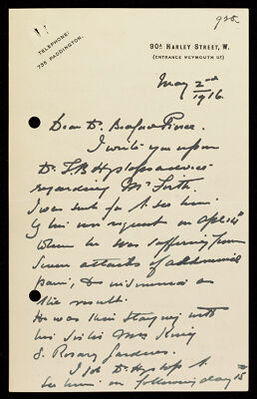 928
TELEPHONE:
735 PADDINGTON.
90A HARLEY STREET, W.
(ENTRANCE WEYMOUTH ST)
May 2nd
1916.
Dear Dr. Bedford Pierce.
I write you upon
Dr. T.B. Hyslop's advice
regarding Mr Firth.
I was sent for to see him
by his own request on April
When he was suffering from
severe attacks of abdominal
pain, & insomnia as
the result.
He was then staying with
his sister Mrs King
8. Rosary Gardens.
I got Dr Hyslop to
see him on following day 15